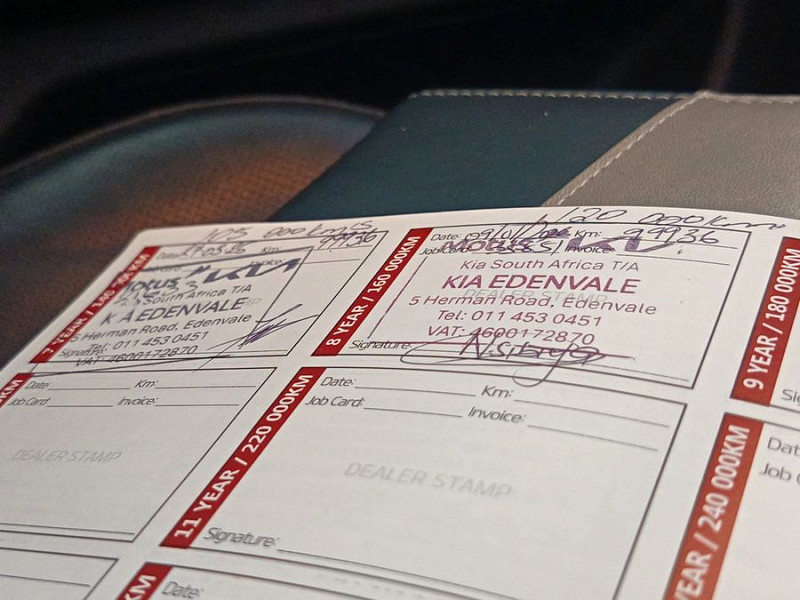 105 000kms
Date: Km: 99936
7 YEAR / 140 000KM
Motus KIA
Kia South Africa T/A
KIA EDENVALE
5 Herman Road, Edenvale
Tel: 011 453 0451
VAT: 4600172870
Signature:
120 000km
Date: Km: 99936
Job Card: Invoice:
8 YEAR / 160 000KM
Motus KIA
Kia South Africa T/A
KIA EDENVALE
5 Herman Road, Edenvale
Tel: 011 453 0451
VAT: 4600172870
Signature:
9 YEAR / 180 000KM
Date: Km:
Job Card: Invoice:
DEALER STAMP
11 YEAR / 220 000KM
Date: Km:
Job Card: Invoice:
DEALER STAMP
Signature:
YEAR / 240 000KM
Job C
Date: